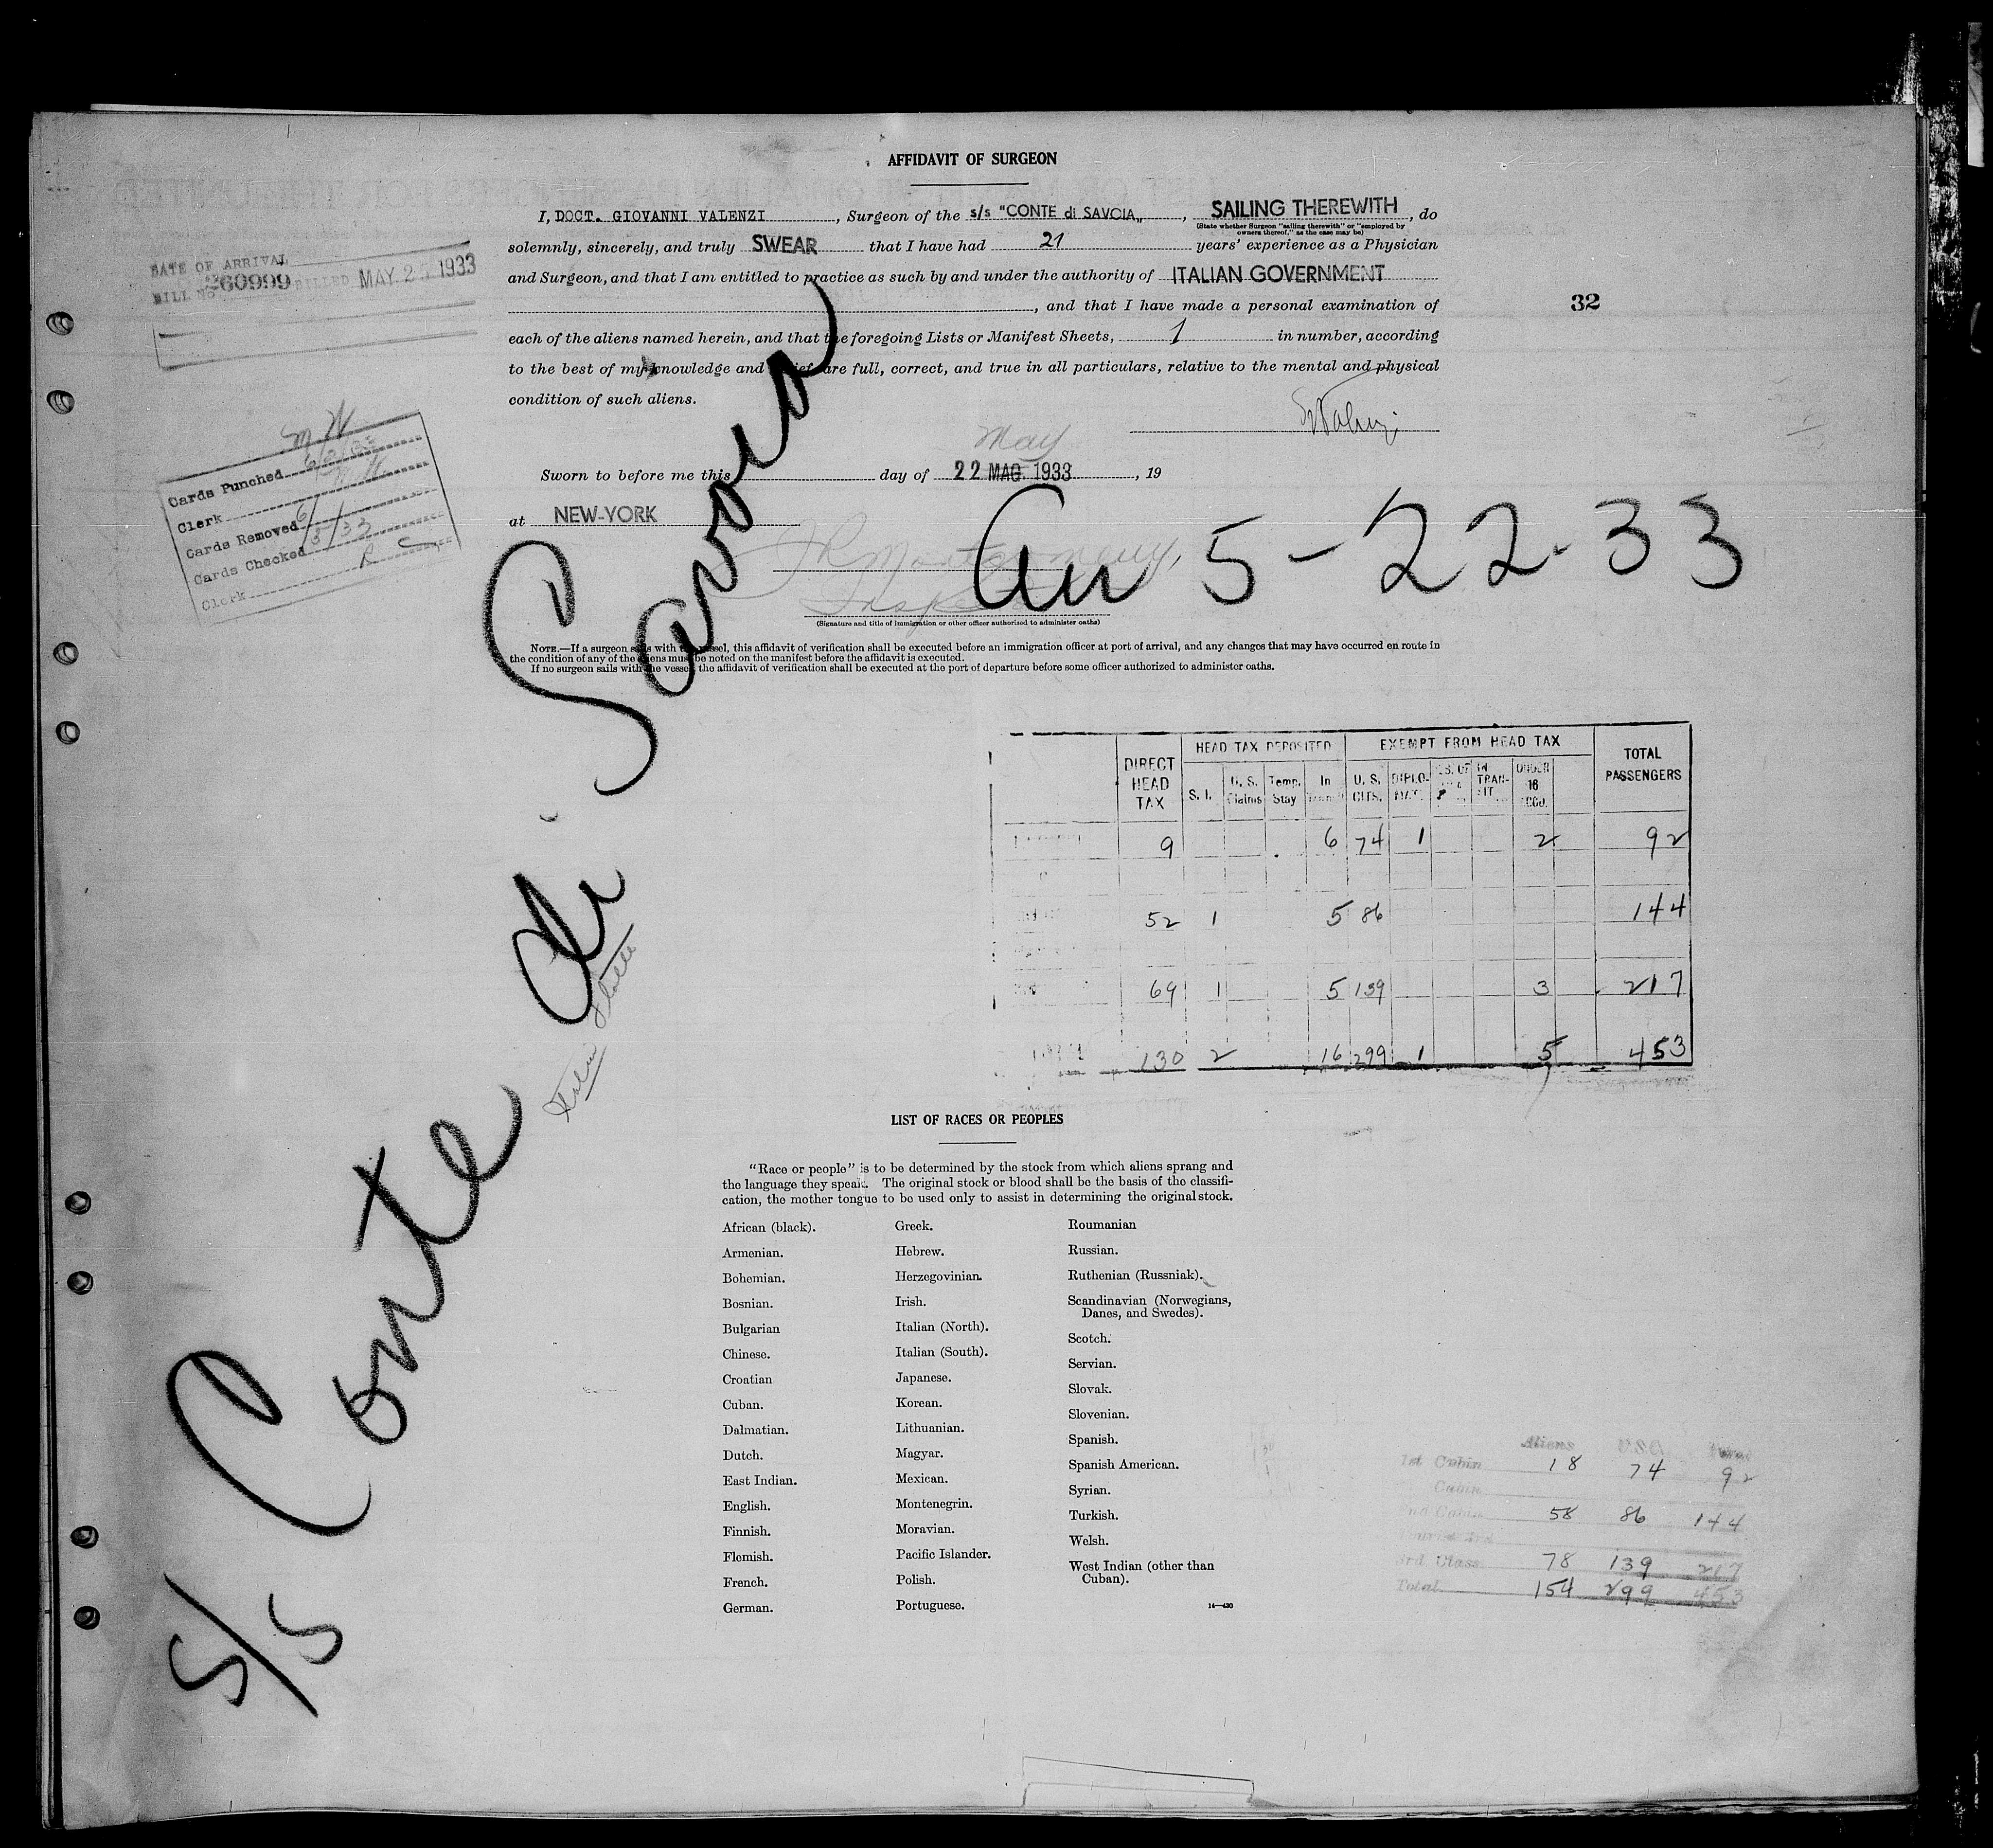 AFFIDAVIT OF SURGEON
I, DOCT. GIOVANNI VALENZI, Surgeon of the s/s "CONTE di SAVOIA„, SAILING THEREWITH, do
(State whether Surgeon "sailing therewith" or "employed by
owners thereof," as the case may be)
solemnly, sincerely, and truly SWEAR that I have had 21 years' experience as a Physician
and Surgeon, and that I am entitled to practice as such by and under the authority of ITALIAN GOVERNMENT
, and that I have made a personal examination of
each of the aliens named herein, and that the foregoing Lists or Manifest Sheets, 1 in number, according
to the best of my knowledge and belief are full, correct, and true in all particulars, relative to the mental and physical
condition of such aliens.
32
DATE OF ARRIVAL
BILL No 260999 BILLED MAY 2 1933
May
Sworn to before me this day of 22 MAG. 1933, 19
at NEW-YORK
Cards Punched
Clerk
Cards Removed
Cards Checked 6/5/33
Clerk R C
JR Montgomery,
Inspector
Arr 5-22-33
(Signature and title of immigration or other officer authorized to administer oaths)
NOTE.—If a surgeon sails with the vessel, this affidavit of verification shall be executed before an immigration officer at port of arrival, and any changes that may have occurred en route in
the condition of any of the aliens must be noted on the manifest before the affidavit is executed.
If no surgeon sails with the vessel, the affidavit of verification shall be executed at the port of departure before some officer authorized to administer oaths.
S/S Conte di Savoia
DIRECT HEAD TAX HEAD TAX DEPOSITED EXEMPT FROM HEAD TAX TOTAL PASSENGERS
S. I. U. S. Claims Temp. Stay In U. S. CITS. DIPLO- MAT. IN TRAN- SIT UNDER 16 ACCO.
9 6 74 1 2 92
52 1 5 86 144
69 1 5 139 3 217
130 2 16 299 1 5 453
LIST OF RACES OR PEOPLES
"Race or people" is to be determined by the stock from which aliens sprang and
the language they speak. The original stock or blood shall be the basis of the classifi-
cation, the mother tongue to be used only to assist in determining the original stock.
African (black).
Armenian.
Bohemian.
Bosnian.
Bulgarian
Chinese.
Croatian
Cuban.
Dalmatian.
Dutch.
East Indian.
English.
Finnish.
Flemish.
French.
German.
Greek.
Hebrew.
Herzegovinian.
Irish.
Italian (North).
Italian (South).
Japanese.
Korean.
Lithuanian.
Magyar.
Mexican.
Montenegrin.
Moravian.
Pacific Islander.
Polish.
Portuguese.
Roumanian
Russian.
Ruthenian (Russniak).
Scandinavian (Norwegians,
Danes, and Swedes).
Scotch.
Servian.
Slovak.
Slovenian.
Spanish.
Spanish American.
Syrian.
Turkish.
Welsh.
West Indian (other than
Cuban).
14—430
Aliens U.S.C. Total
1st Cabin 18 74 92
Cabin
2nd Cabin 58 86 144
3rd Class 78 139 217
Total 154 299 453